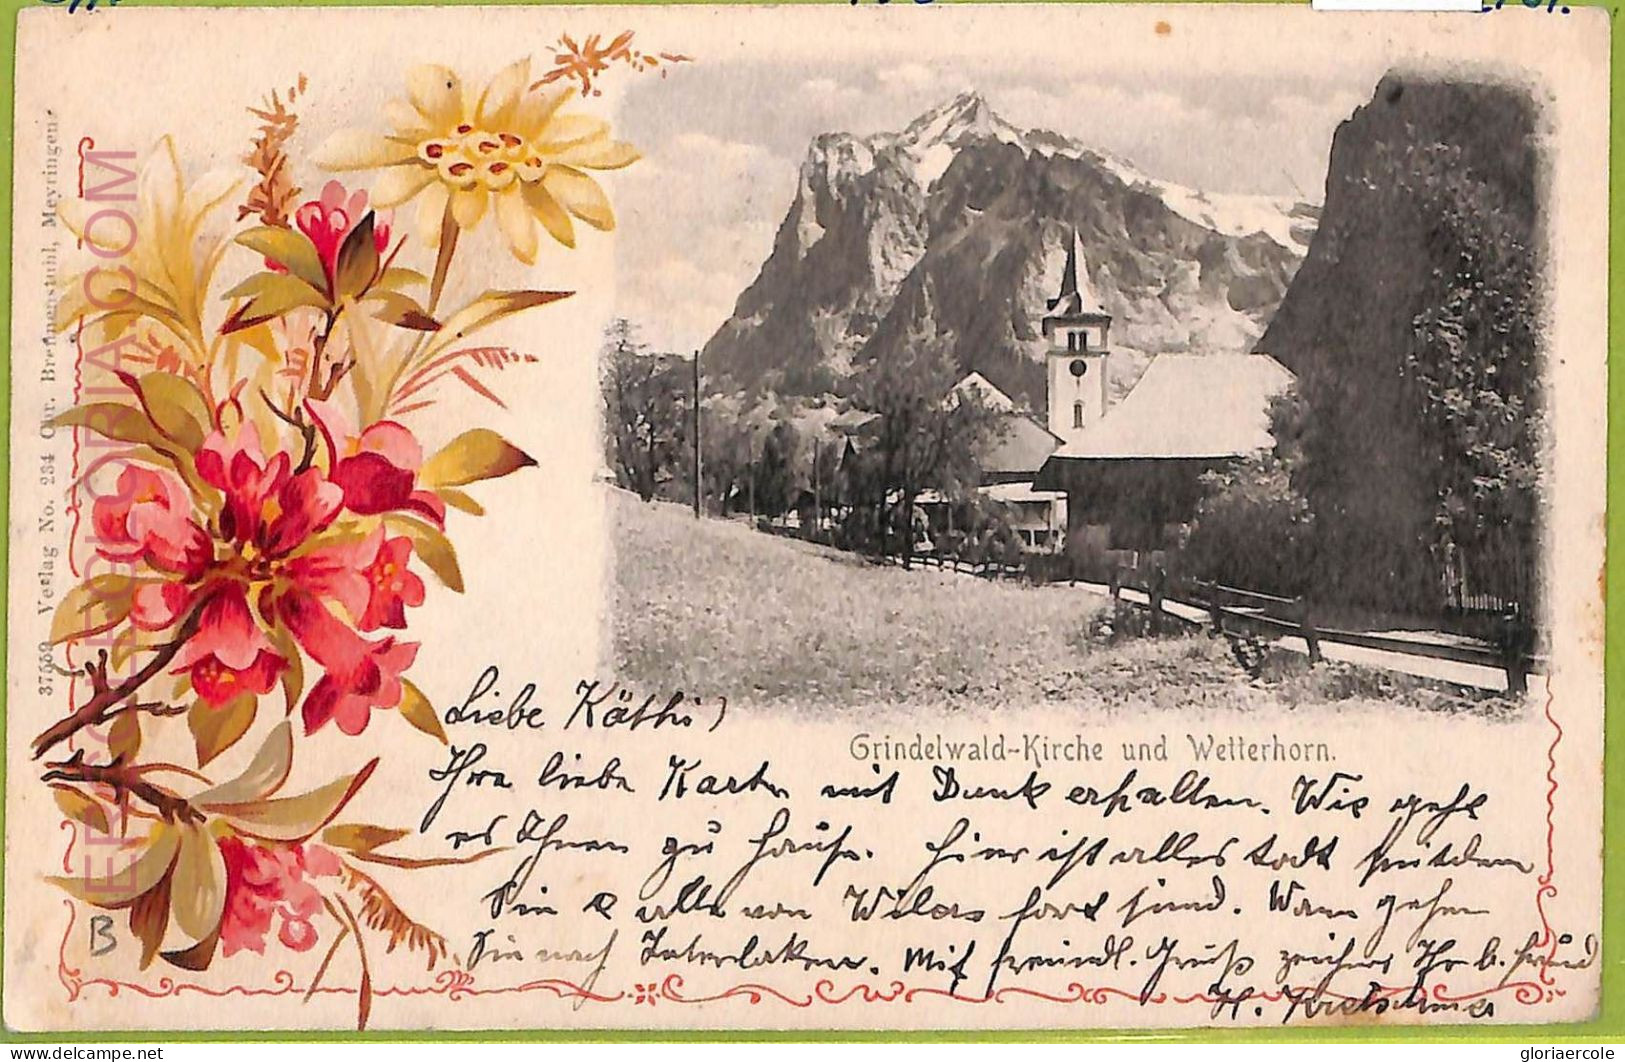 37539 Verlag No. 234 Chr. Brennenstuhl, Meyringen.
ERSGLEGLORIA.COM
Grindelwald-Kirche und Wetterhorn.
Liebe Käthi)
Ihre liebe Karte mit Dank erhalten. Wie geht
es Ihnen zu Hause. Hier ist alles todt seitdem
Sie & alle von Wilers fort sind. Wann gehen
Sie nach Interlaken. Mit freundl. Gruß zeichnet Ihr b. Freund
H. Kretschmer
B
delcampe.net
gloriaercole